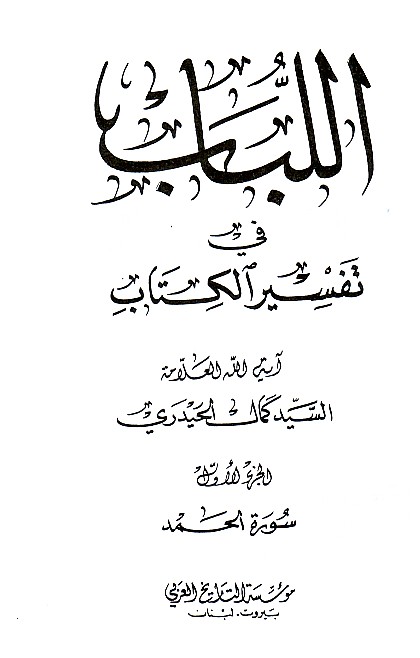 اللُّبَاب
في
تَفْسِيرِ الكِتَابِ
آية الله العلّامة
السَّيِّد كمال الحَيْدَري
الجزء الأوّل
سُورَة الحَمد
مؤسّسة التاريخ العربي
بيروت. لبنان